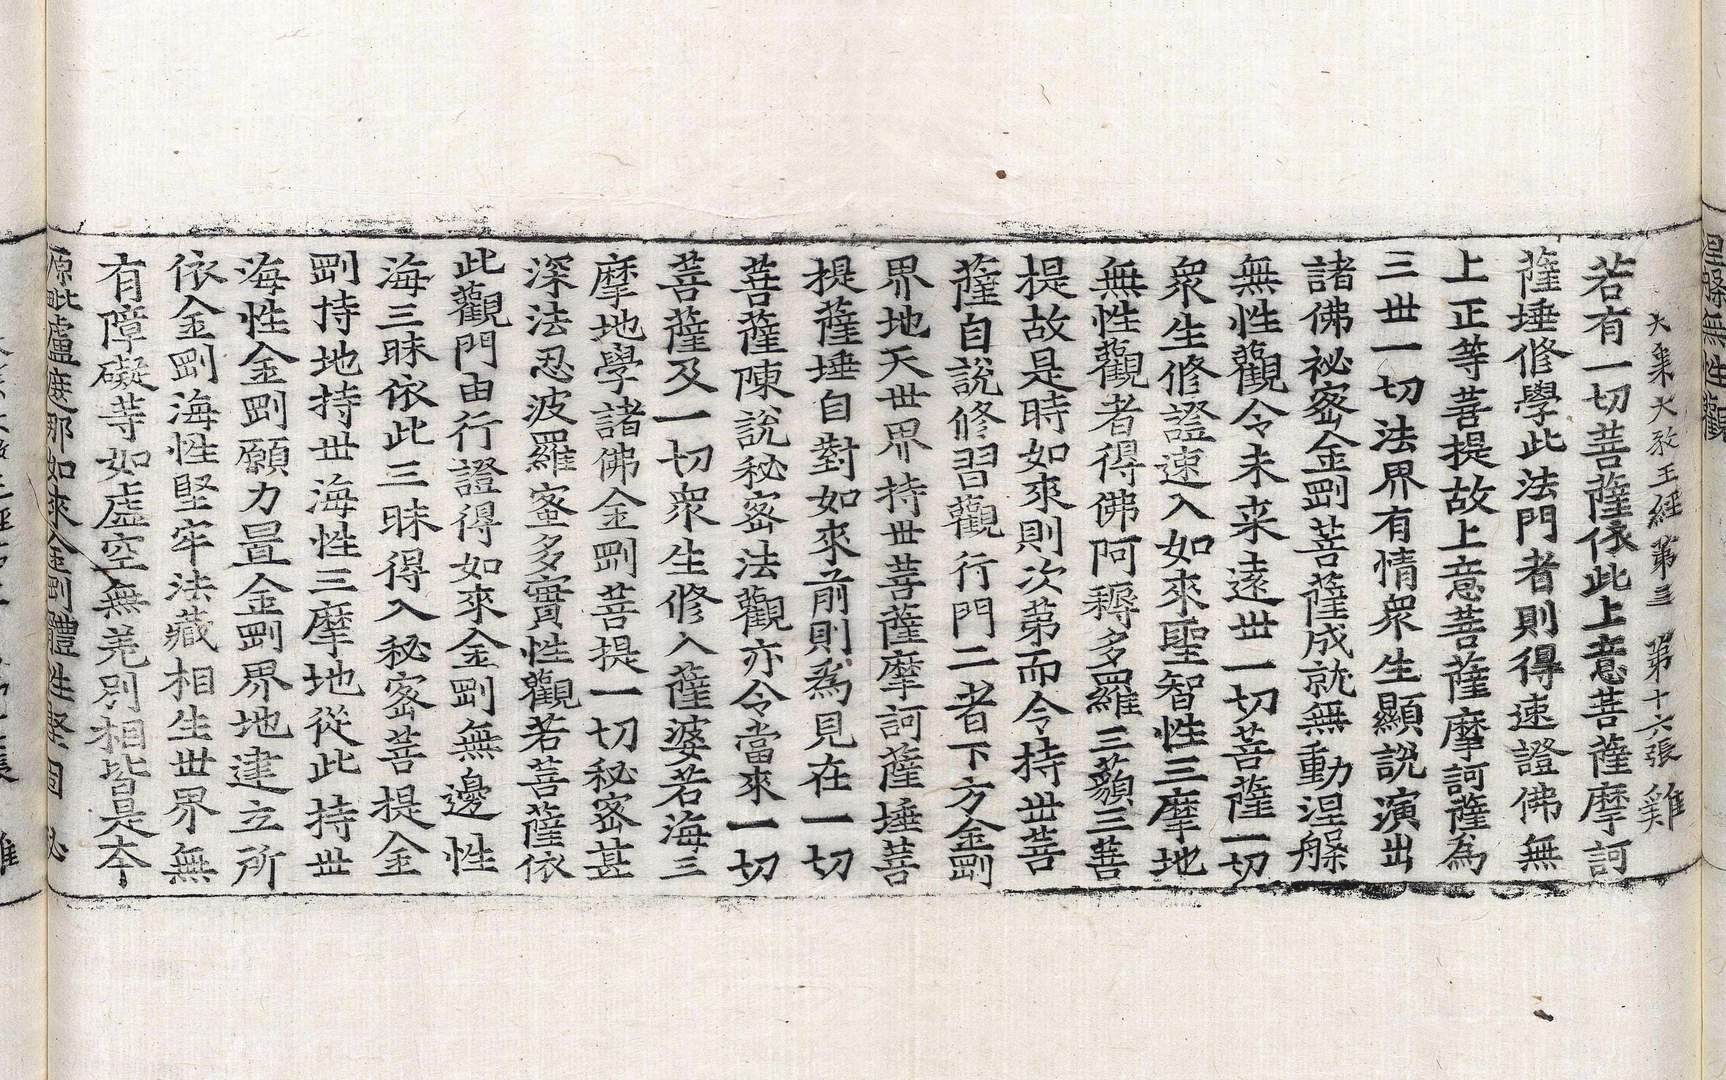 涅槃無性觀
大乗大教王經第三　第十六張　雞
若有一切菩薩依此上意菩薩摩訶
薩埵修學此法門者則得速證佛無
上正等菩提故上意菩薩摩訶薩為
三世一切法界有情衆生顯説演出
諸佛祕密金剛菩薩成就無動涅槃
無性觀令未来遠世一切菩薩一切
衆生修證速入如來聖智性三摩地
無性觀者得佛阿耨多羅三藐三菩
提故是時如來則次第而令持世菩
薩自説修習觀行門二者下方金剛
界地天世界持世菩薩摩訶薩埵菩
提薩埵自對如來前則為見在一切
菩薩陳説秘密法觀亦令當來一切
菩薩及一切衆生修入薩婆若海三
摩地學諸佛金剛菩提一切秘密甚
深法忍波羅蜜多實性觀若菩薩依
此觀門由行證得如來金剛無邊性
海三昧依此三昧得入秘密菩提金
剛持地持世海性三摩地從此持世
海性金剛願力畳金剛界地建立所
依金剛海性堅牢法藏相生世界無
有障礙等如虛空無差別相皆是本
源毗盧遮那如來金剛體性堅固